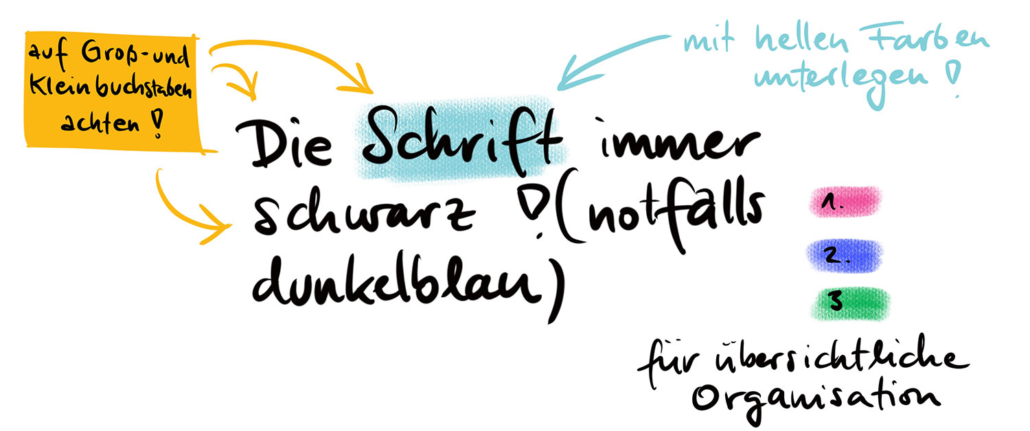 auf Groß- und
Kleinbuchstaben
achten!
mit hellen Farben
unterlegen!
Die Schrift immer
schwarz! (notfalls
dunkelblau)
1.
2.
3
für übersichtliche
Organisation